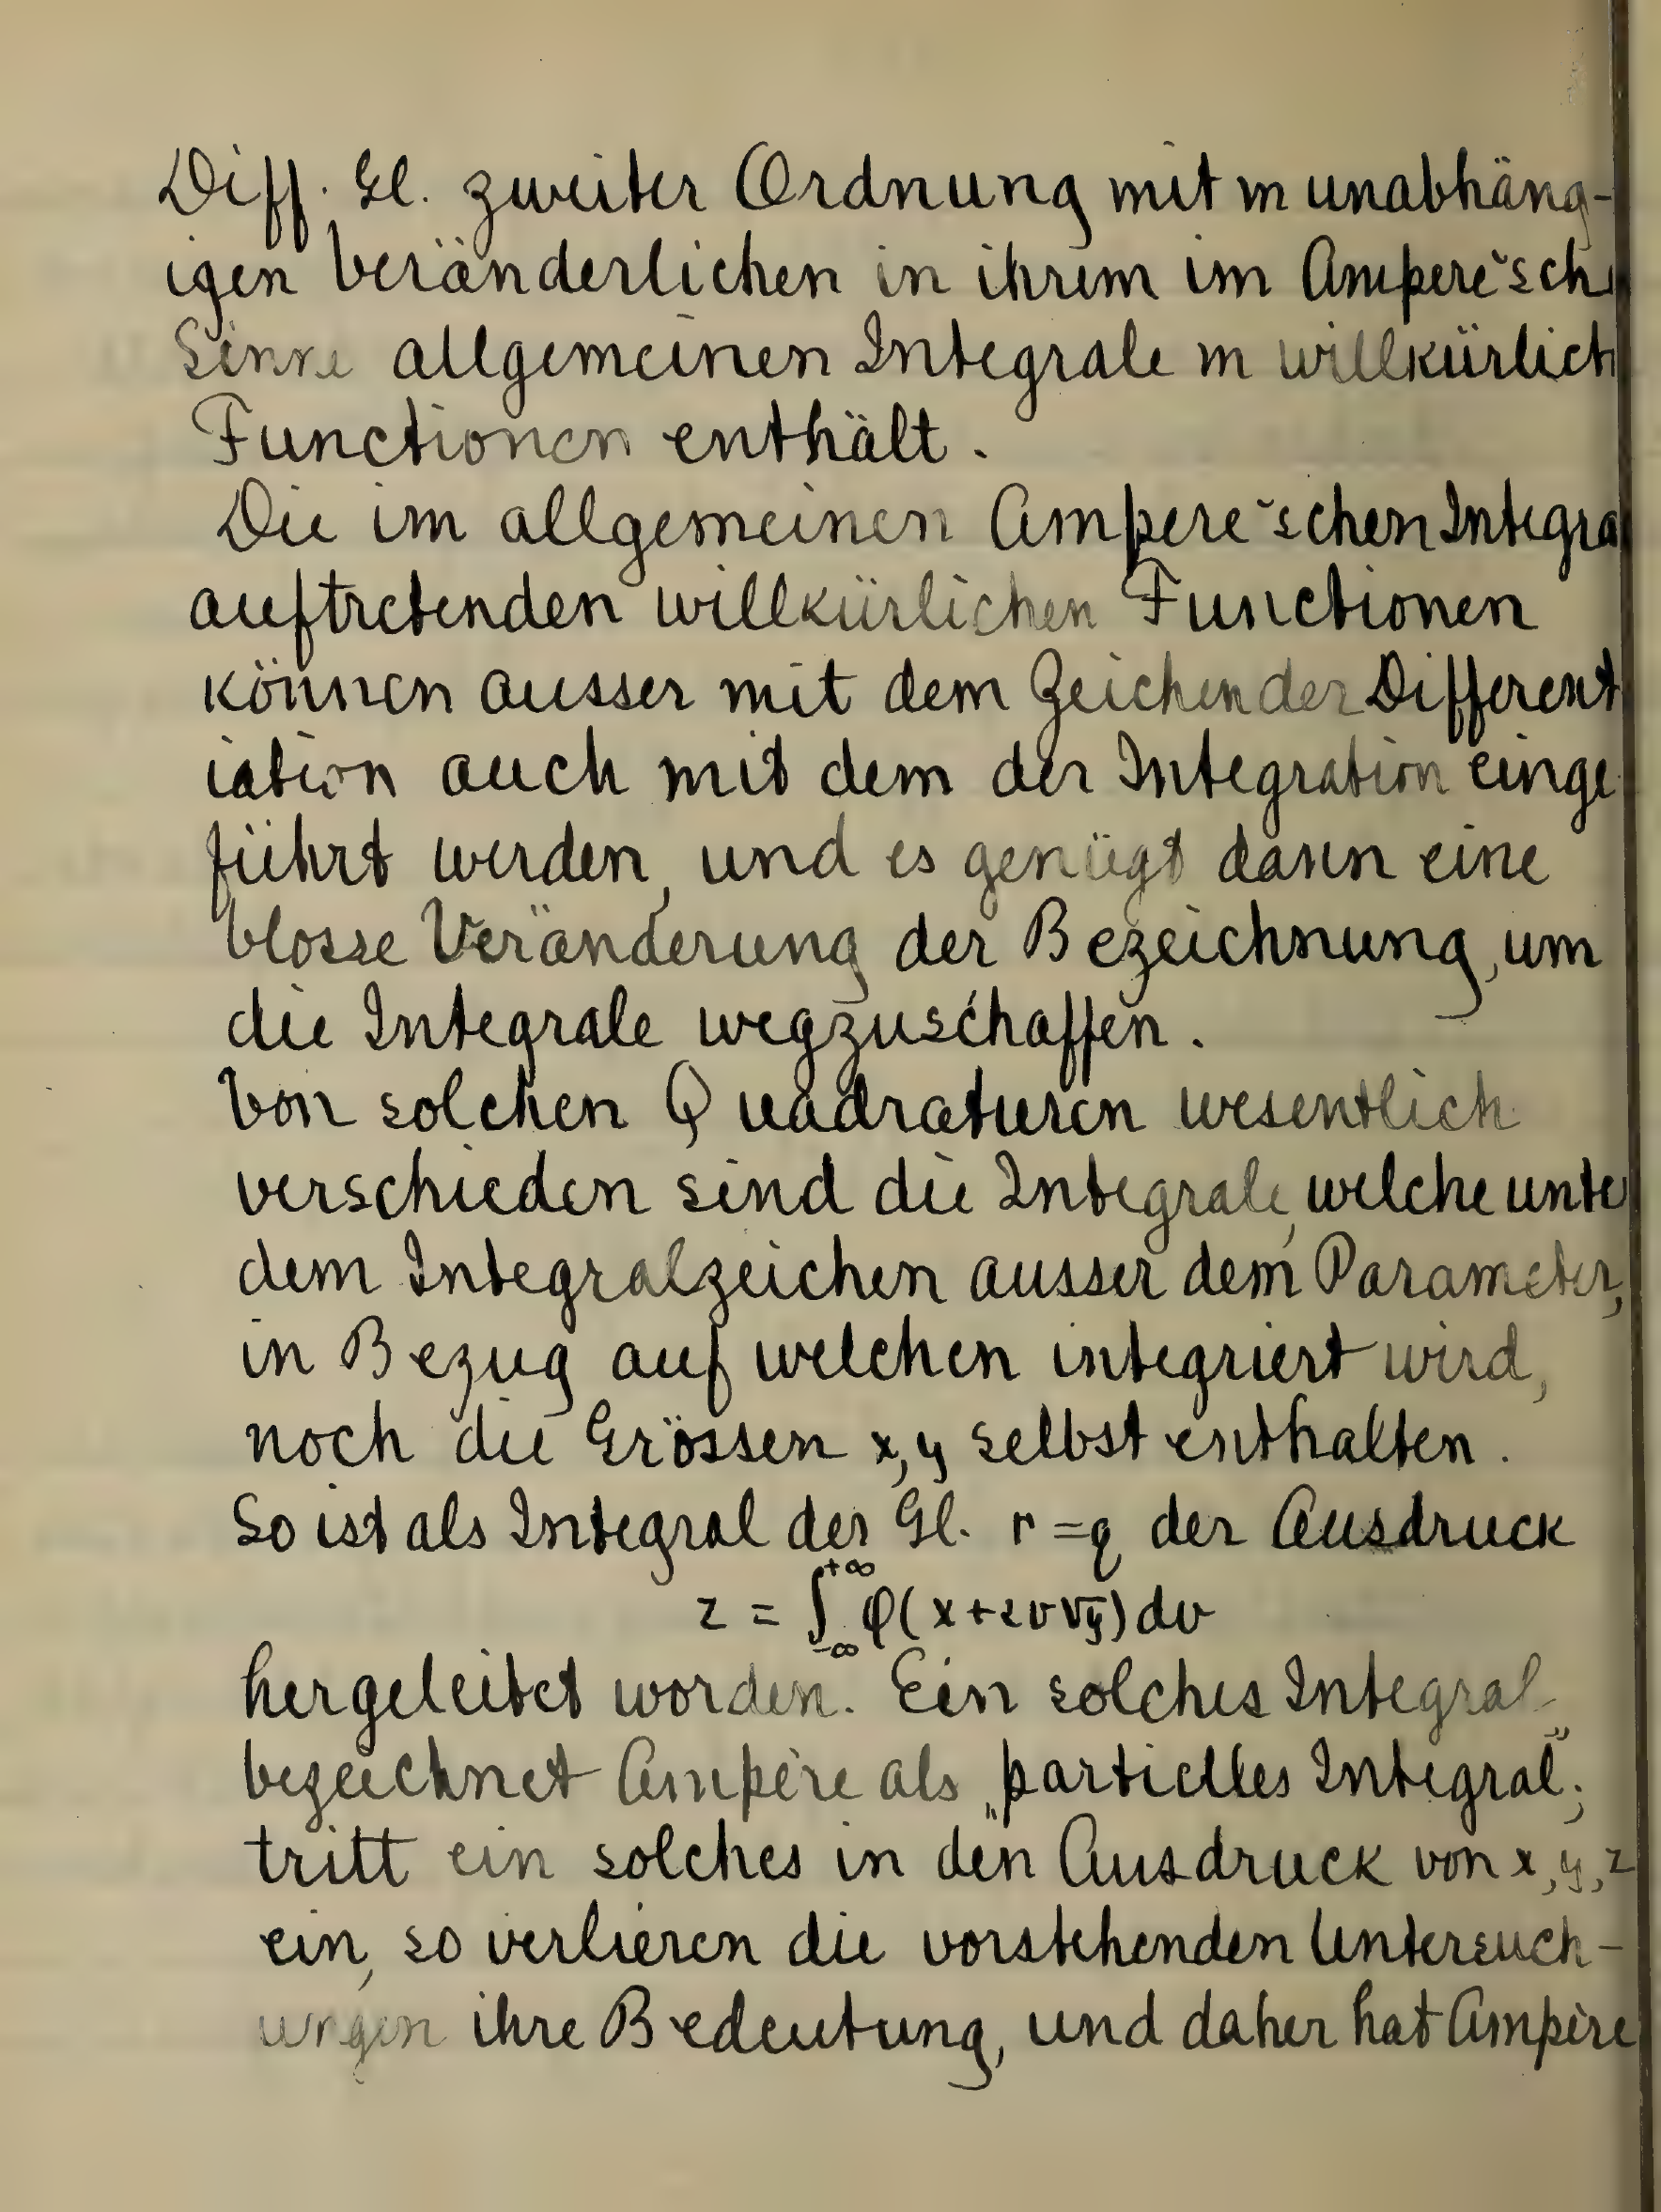 Diff. Gl. zweiter Ordnung mit m unabhäng-
igen Veränderlichen in ihrem im Ampere'sch
Sinne allgemeinen Integrale m willkürlich
Functionen enthält.
Die im allgemeinen Ampere'schen Integra
auftretenden willkürlichen Functionen
können ausser mit dem Zeichen der Different
iation auch mit dem der Integration einge
führt werden, und es genügt dann eine
blosse Veränderung der Bezeichnung, um
die Integrale wegzuschaffen.
Von solchen Quadraturen wesentlich
verschieden sind die Integrale, welche unte
dem Integralzeichen ausser dem Parameter,
in Bezug auf welchen integriert wird,
noch die Grössen x, y selbst enthalten.
So ist als Integral der Gl. r = q der Ausdruck
z = ∫_{-∞}^{+∞} φ(x+2v√y) dv
hergeleitet worden. Ein solches Integral
bezeichnet Ampère als „partielles Integral";
tritt ein solches in den Ausdruck von x, y, z
ein, so verlieren die vorstehenden Untersuch-
ungen ihre Bedeutung, und daher hat Ampère